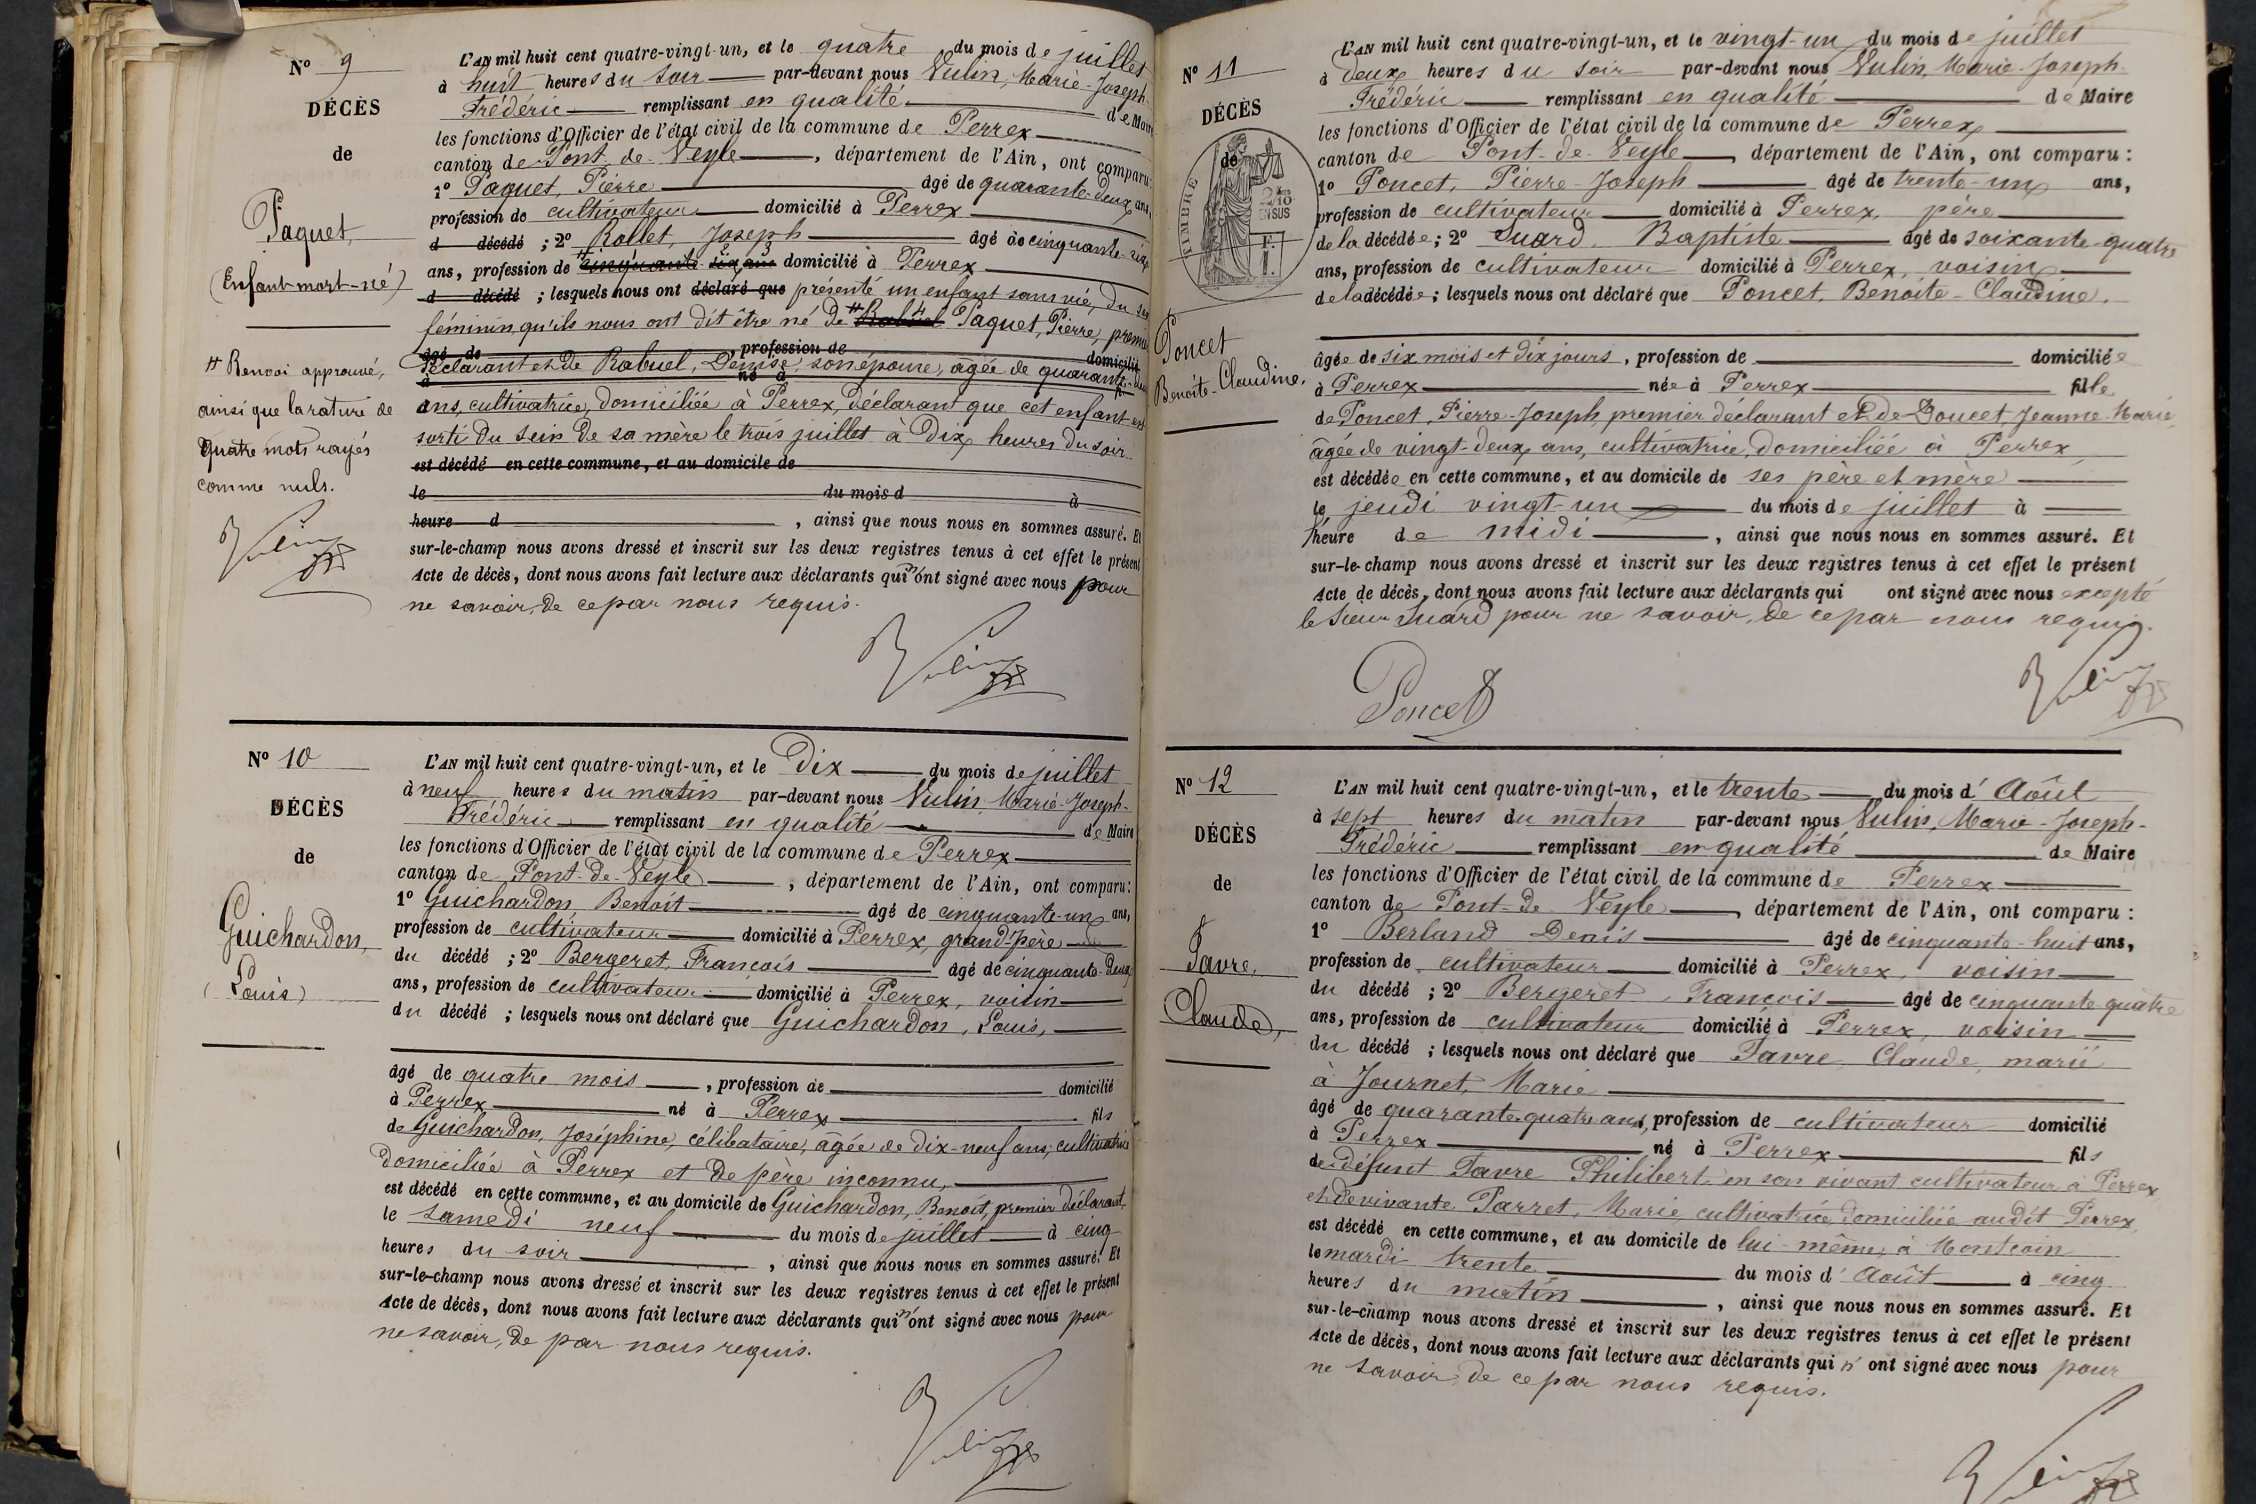 N° 9
DÉCÈS
de
Paquet,
(Enfant mort-né)
# Renvoi approuvé,
ainsi que la rature de
quatre mots rayés
comme nuls.
Vulin
L'AN mil huit cent quatre-vingt-un, et le quatre du mois de juillet
à huit heures du soir par-devant nous Vulin, Marie-Joseph-
Frédéric remplissant en qualité de Maire
les fonctions d'Officier de l'état civil de la commune de Perrex
canton de Pont-de-Veyle, département de l'Ain, ont comparu:
1° Paquet, Pierre âgé de quarante-deux ans,
profession de cultivateur domicilié à Perrex
d décédé ; 2° Rollet, Joseph âgé de cinquante-six
ans, profession de cinquante six ans domicilié à Perrex
d décédé ; lesquels nous ont déclaré que présenté un enfant sans vie, du sexe
féminin qu'ils nous ont dit être né de # Rabuel Paquet, Pierre, premier
âgé de profession de domicilié
déclarant et de Rabuel, Denise, son épouse, âgée de quarante-deux
à né à fils
ans, cultivatrice, domiciliée à Perrex, déclarant que cet enfant est
sorti du sein de sa mère le trois juillet à dix heures du soir
est décédé en cette commune, et au domicile de
le du mois d à
heure d , ainsi que nous nous en sommes assuré. Et
sur-le-champ nous avons dressé et inscrit sur les deux registres tenus à cet effet le présent
Acte de décès, dont nous avons fait lecture aux déclarants qui n'ont signé avec nous pour
ne savoir, de ce par nous requis.
Vulin
N° 10
DÉCÈS
de
Guichardon,
(Louis)
L'AN mil huit cent quatre-vingt-un, et le dix du mois de juillet
à neuf heures du matin par-devant nous Vulin, Marie-Joseph-
Frédéric remplissant en qualité de Maire
les fonctions d'Officier de l'état civil de la commune de Perrex
canton de Pont-de-Veyle, département de l'Ain, ont comparu:
1° Guichardon, Benoît âgé de cinquante-un ans,
profession de cultivateur domicilié à Perrex, grand-père de
du décédé ; 2° Bergeret, François âgé de cinquante-deux
ans, profession de cultivateur domicilié à Perrex, voisin
du décédé ; lesquels nous ont déclaré que Guichardon, Louis,
âgé de quatre mois, profession de domicilié
à Perrex né à Perrex fils
de Guichardon, Joséphine, célibataire, âgée de dix-neuf ans, cultivatrice
domiciliée à Perrex et de père inconnu,
est décédé en cette commune, et au domicile de Guichardon, Benoît, premier déclarant,
le samedi neuf du mois de juillet à cinq
heures du soir , ainsi que nous nous en sommes assuré. Et
sur-le-champ nous avons dressé et inscrit sur les deux registres tenus à cet effet le présent
Acte de décès, dont nous avons fait lecture aux déclarants qui n'ont signé avec nous pour
ne savoir, de par nous requis.
Vulin
N° 11
DÉCÈS
de
TIMBRE
2/10
EN SUS
Poncet
Benoîte-Claudine.
L'AN mil huit cent quatre-vingt-un, et le vingt-un du mois de juillet
à deux heures du soir par-devant nous Vulin, Marie-Joseph-
Frédéric remplissant en qualité de Maire
les fonctions d'Officier de l'état civil de la commune de Perrex
canton de Pont-de-Veyle, département de l'Ain, ont comparu :
1° Poncet, Pierre-Joseph âgé de trente-un ans,
profession de cultivateur domicilié à Perrex, père
de la décédée ; 2° Suard, Baptiste âgé de soixante-quatre
ans, profession de cultivateur domicilié à Perrex, voisin
de la décédée ; lesquels nous ont déclaré que Poncet, Benoîte-Claudine,
âgée de six mois et dix jours, profession de domiciliée
à Perrex née à Perrex fille
de Poncet, Pierre-Joseph, premier déclarant et de Doucet, Jeanne-Marie,
âgée de vingt-deux ans, cultivatrice, domiciliée à Perrex
est décédée en cette commune, et au domicile de ses père et mère
le jeudi vingt-un du mois de juillet à
heure de midi , ainsi que nous nous en sommes assuré. Et
sur-le-champ nous avons dressé et inscrit sur les deux registres tenus à cet effet le présent
Acte de décès, dont nous avons fait lecture aux déclarants qui ont signé avec nous excepté
le sieur Suard pour ne savoir, de ce par nous requis.
Poncet
Vulin
N° 12
DÉCÈS
de
Favre,
Claude,
L'AN mil huit cent quatre-vingt-un, et le trente du mois d'Août
à sept heures du matin par-devant nous Vulin, Marie-Joseph-
Frédéric remplissant en qualité de Maire
les fonctions d'Officier de l'état civil de la commune de Perrex
canton de Pont-de-Veyle, département de l'Ain, ont comparu :
1° Berland Denis âgé de cinquante-huit ans,
profession de cultivateur domicilié à Perrex, voisin
du décédé ; 2° Bergeret, François âgé de cinquante-quatre
ans, profession de cultivateur domicilié à Perrex, voisin
du décédé ; lesquels nous ont déclaré que Favre, Claude, marié
à Journet, Marie
âgé de quarante-quatre ans, profession de cultivateur domicilié
à Perrex né à Perrex fils
de défunt Favre Philibert en son vivant cultivateur à Perrex
et de vivante Parret, Marie, cultivatrice domiciliée audit Perrex,
est décédé en cette commune, et au domicile de lui-même, à Montcoin
le mardi trente du mois d'Août à cinq
heures du matin , ainsi que nous nous en sommes assuré. Et
sur-le-champ nous avons dressé et inscrit sur les deux registres tenus à cet effet le présent
Acte de décès, dont nous avons fait lecture aux déclarants qui n'ont signé avec nous pour
ne savoir, de ce par nous requis.
Vulin